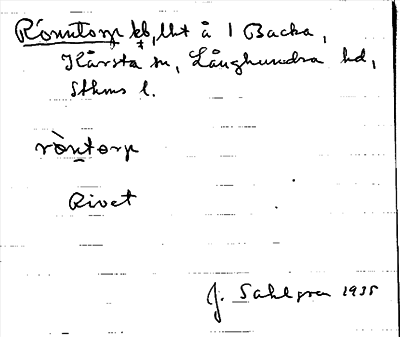 Rönntorp kb, lht å 1 Backa,
Kårsta sn, Långhundra hd,
Sthms l.
rὸntorp
Rivet
J. Sahlgren 1935